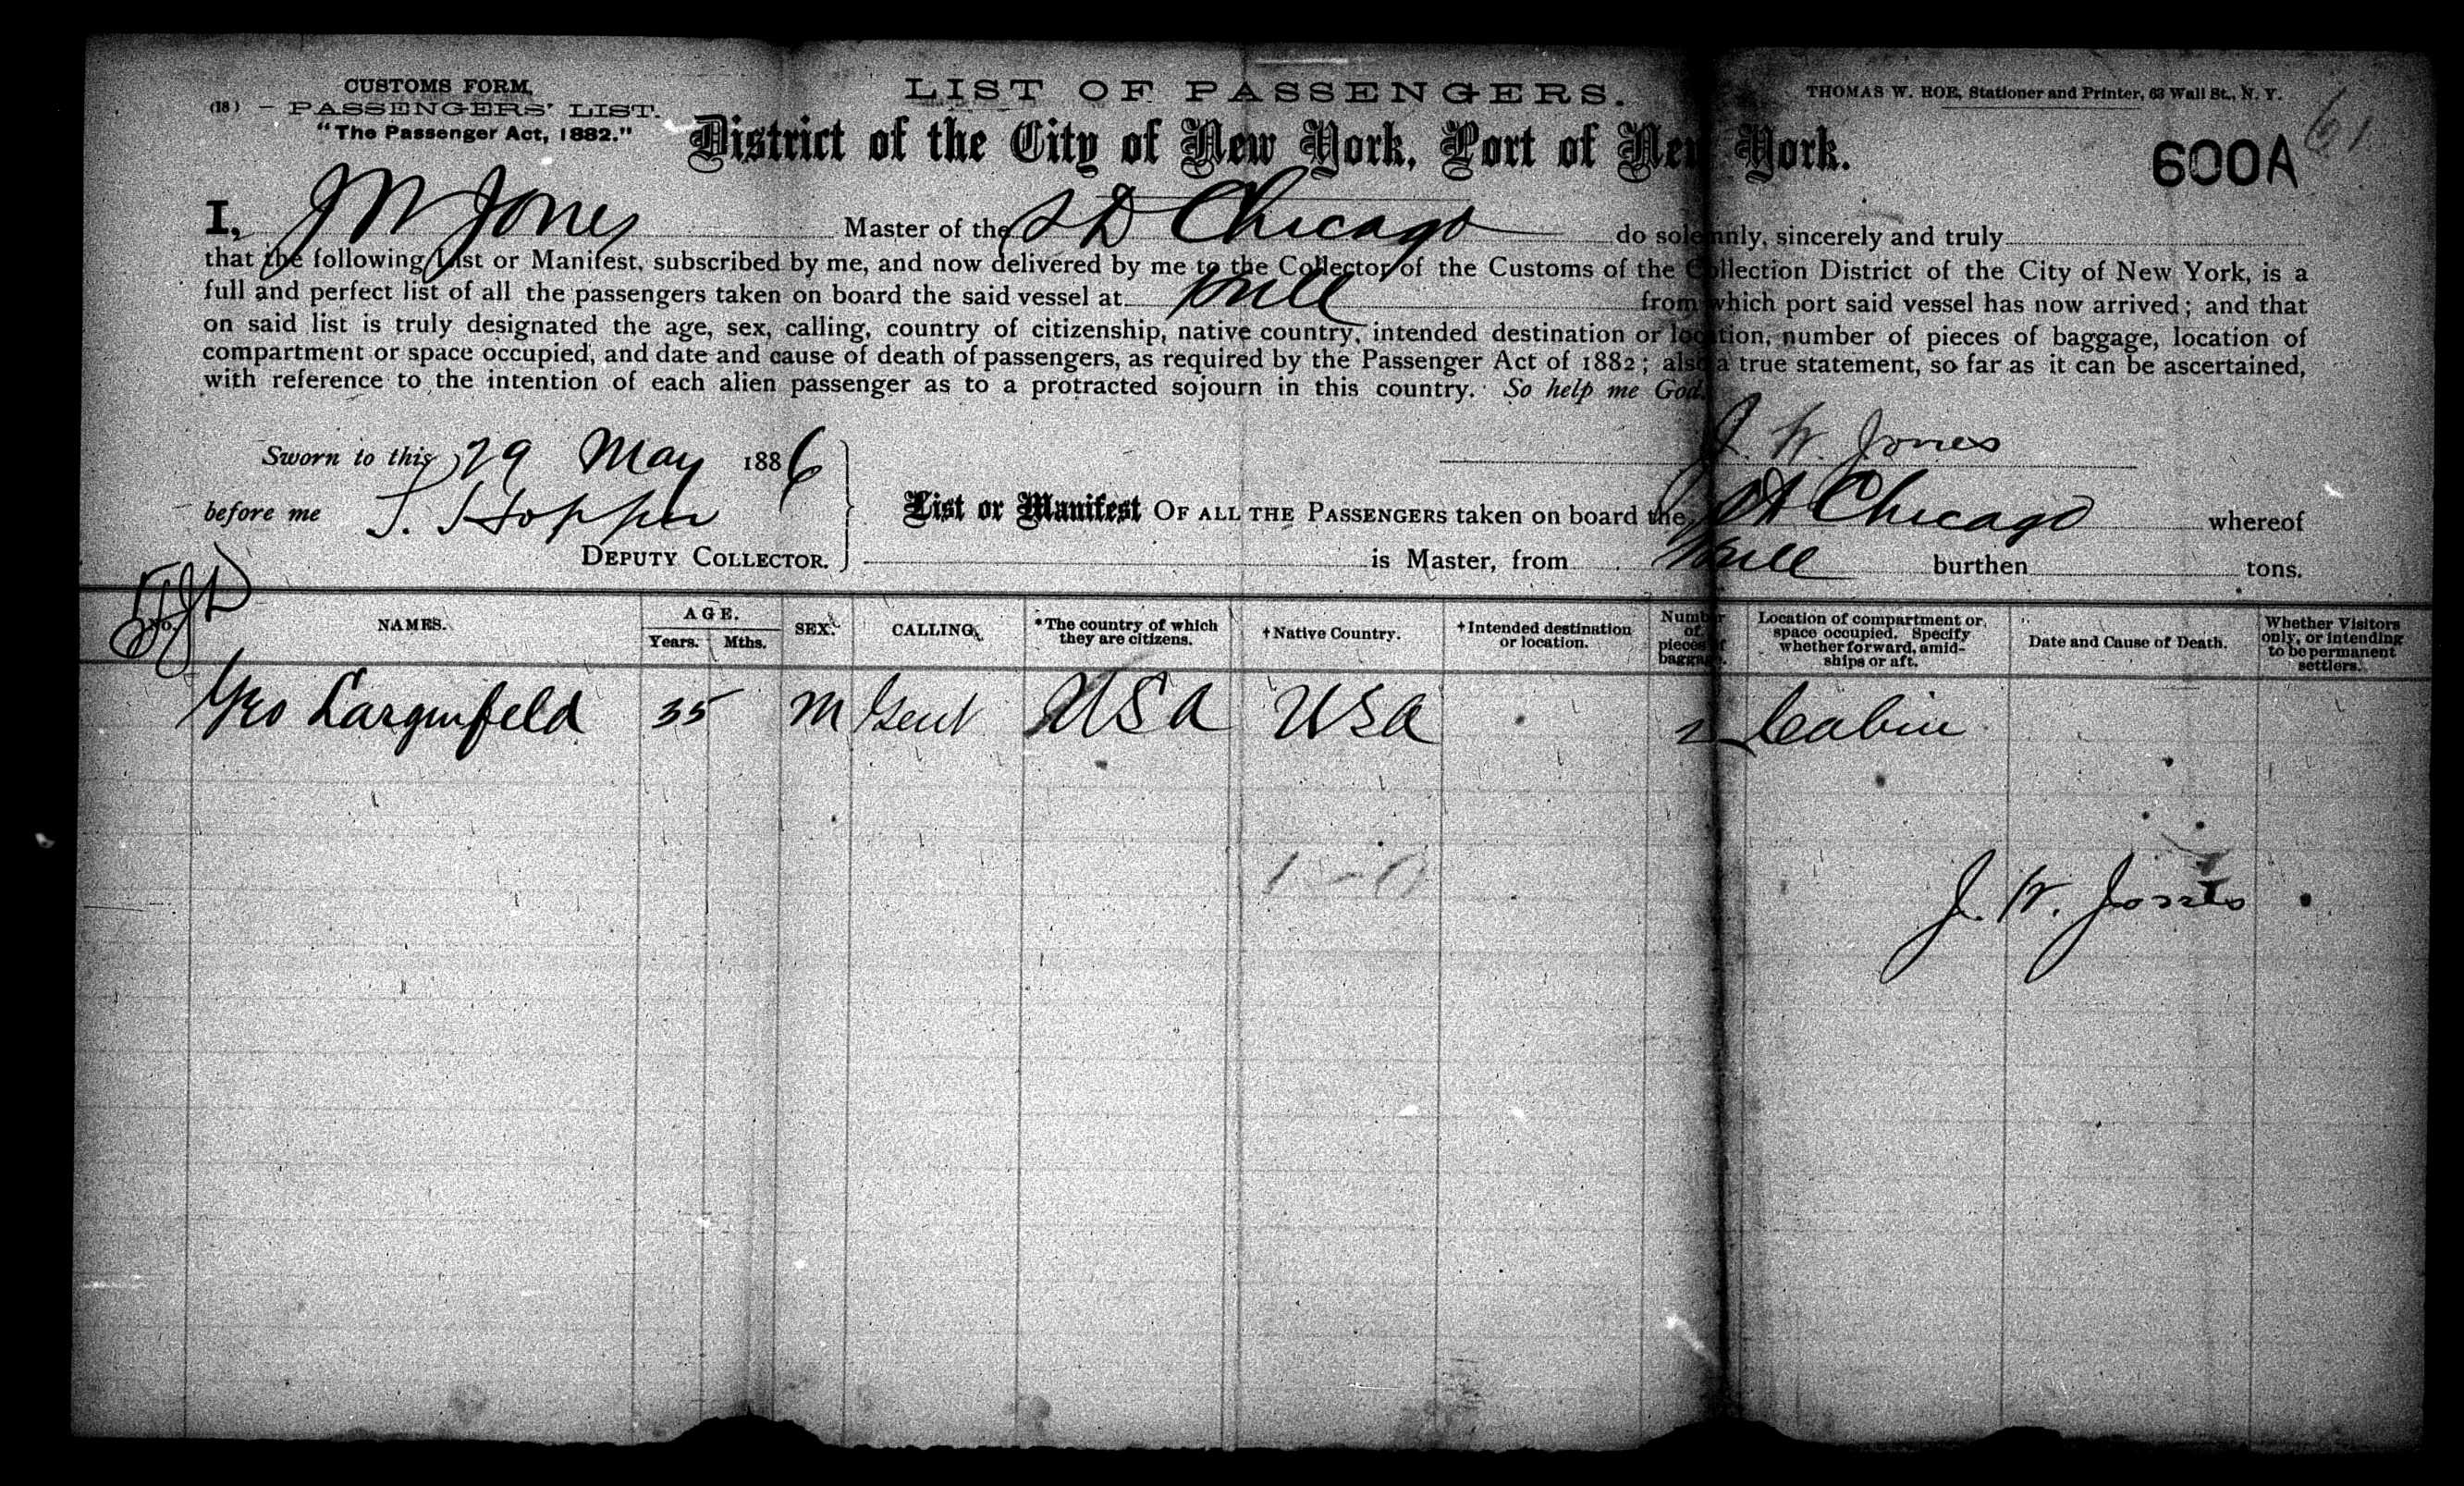 CUSTOMS FORM,
(18) — PASSENGERS' LIST.
"The Passenger Act, 1882."
LIST OF PASSENGERS.
THOMAS W. ROE, Stationer and Printer, 63 Wall St., N. Y.
61
District of the City of New York, Port of New York.
600A
I, J W Jones Master of the SS Chicago do solemnly, sincerely and truly
that the following List or Manifest, subscribed by me, and now delivered by me to the Collector of the Customs of the Collection District of the City of New York, is a
full and perfect list of all the passengers taken on board the said vessel at Hull from which port said vessel has now arrived; and that
on said list is truly designated the age, sex, calling, country of citizenship, native country, intended destination or location, number of pieces of baggage, location of
compartment or space occupied, and date and cause of death of passengers, as required by the Passenger Act of 1882; also a true statement, so far as it can be ascertained,
with reference to the intention of each alien passenger as to a protracted sojourn in this country. So help me God.
J. W. Jones
Sworn to this 29 May 1886
before me
DEPUTY COLLECTOR.
List or Manifest OF ALL THE PASSENGERS taken on board the Chicago whereof
is Master, from Hull burthen tons.
No. NAMES. AGE. Years. Mths. SEX. CALLING. *The country of which they are citizens. †Native Country. †Intended destination or location. Number of pieces of baggage. Location of compartment or space occupied. Specify whether forward, amidships or aft. Date and Cause of Death. Whether Visitors only, or intending to be permanent settlers.
Geo 35 M Gent USA USA 2 Cabin
J. W. Jones